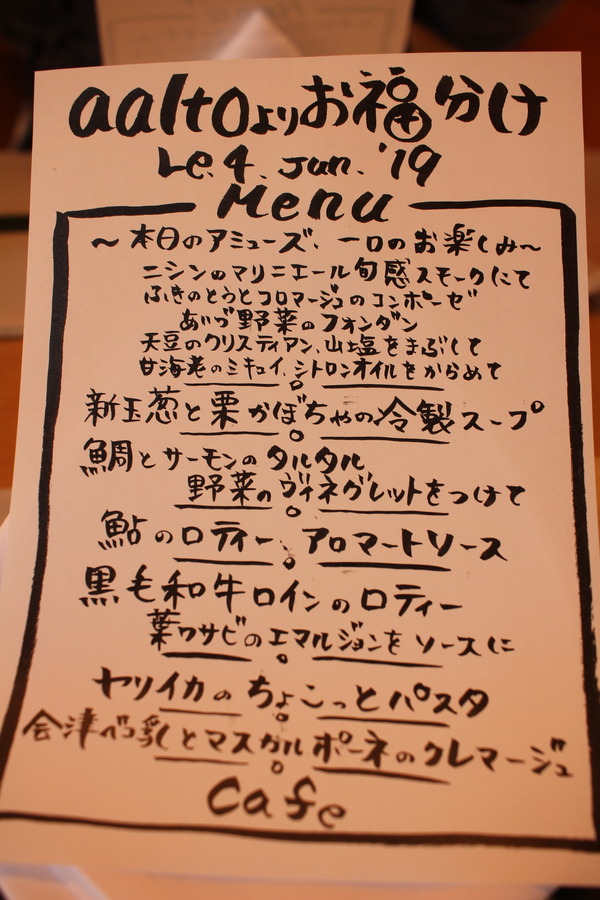 aaltoよりお福分け
Le.4. Jun. '19
Menu
～本日のアミューズ、一口のお楽しみ～
ニシンのマリニエール旬感スモークにて
ふきのとうとコロマージュのコンポーゼ
あいづ野菜のフォンダン
天豆のクリスティアン、山塩をまぶして
甘海老のミキュイ、シトロンオイルをからめて
新玉葱と栗かぼちゃの冷製スープ
鯛とサーモンのタルタル
野菜のヴィネグレットをつけて
鮎のロティー、アロマートソース
黒毛和牛ロインのロティー
葉ワサビのエマルジョンをソースに
ヤリイカのちょこっとパスタ
会津べこ乳とマスカルポーネのクレマージュ
Cafe